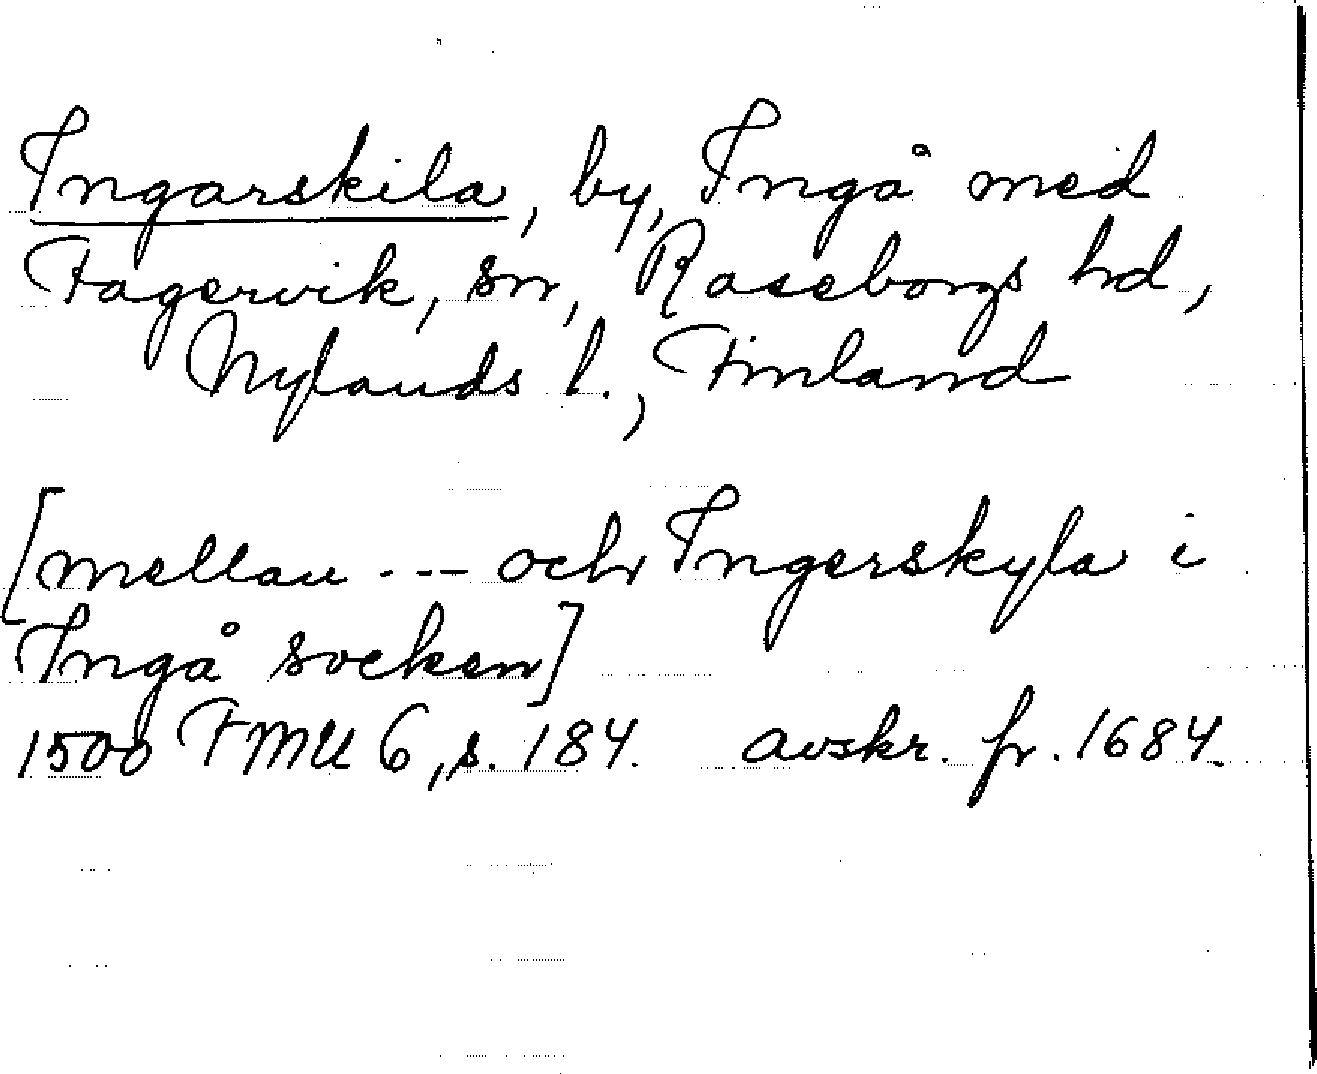 Ingarskila, by, Ingå med
Fagervik, sn, Raseborgs hd,
Nylands l., Finland
[mellan --- och Ingerskyla i
Ingå socken]
1500 FMU 6, s. 184. avskr. fr. 1684.